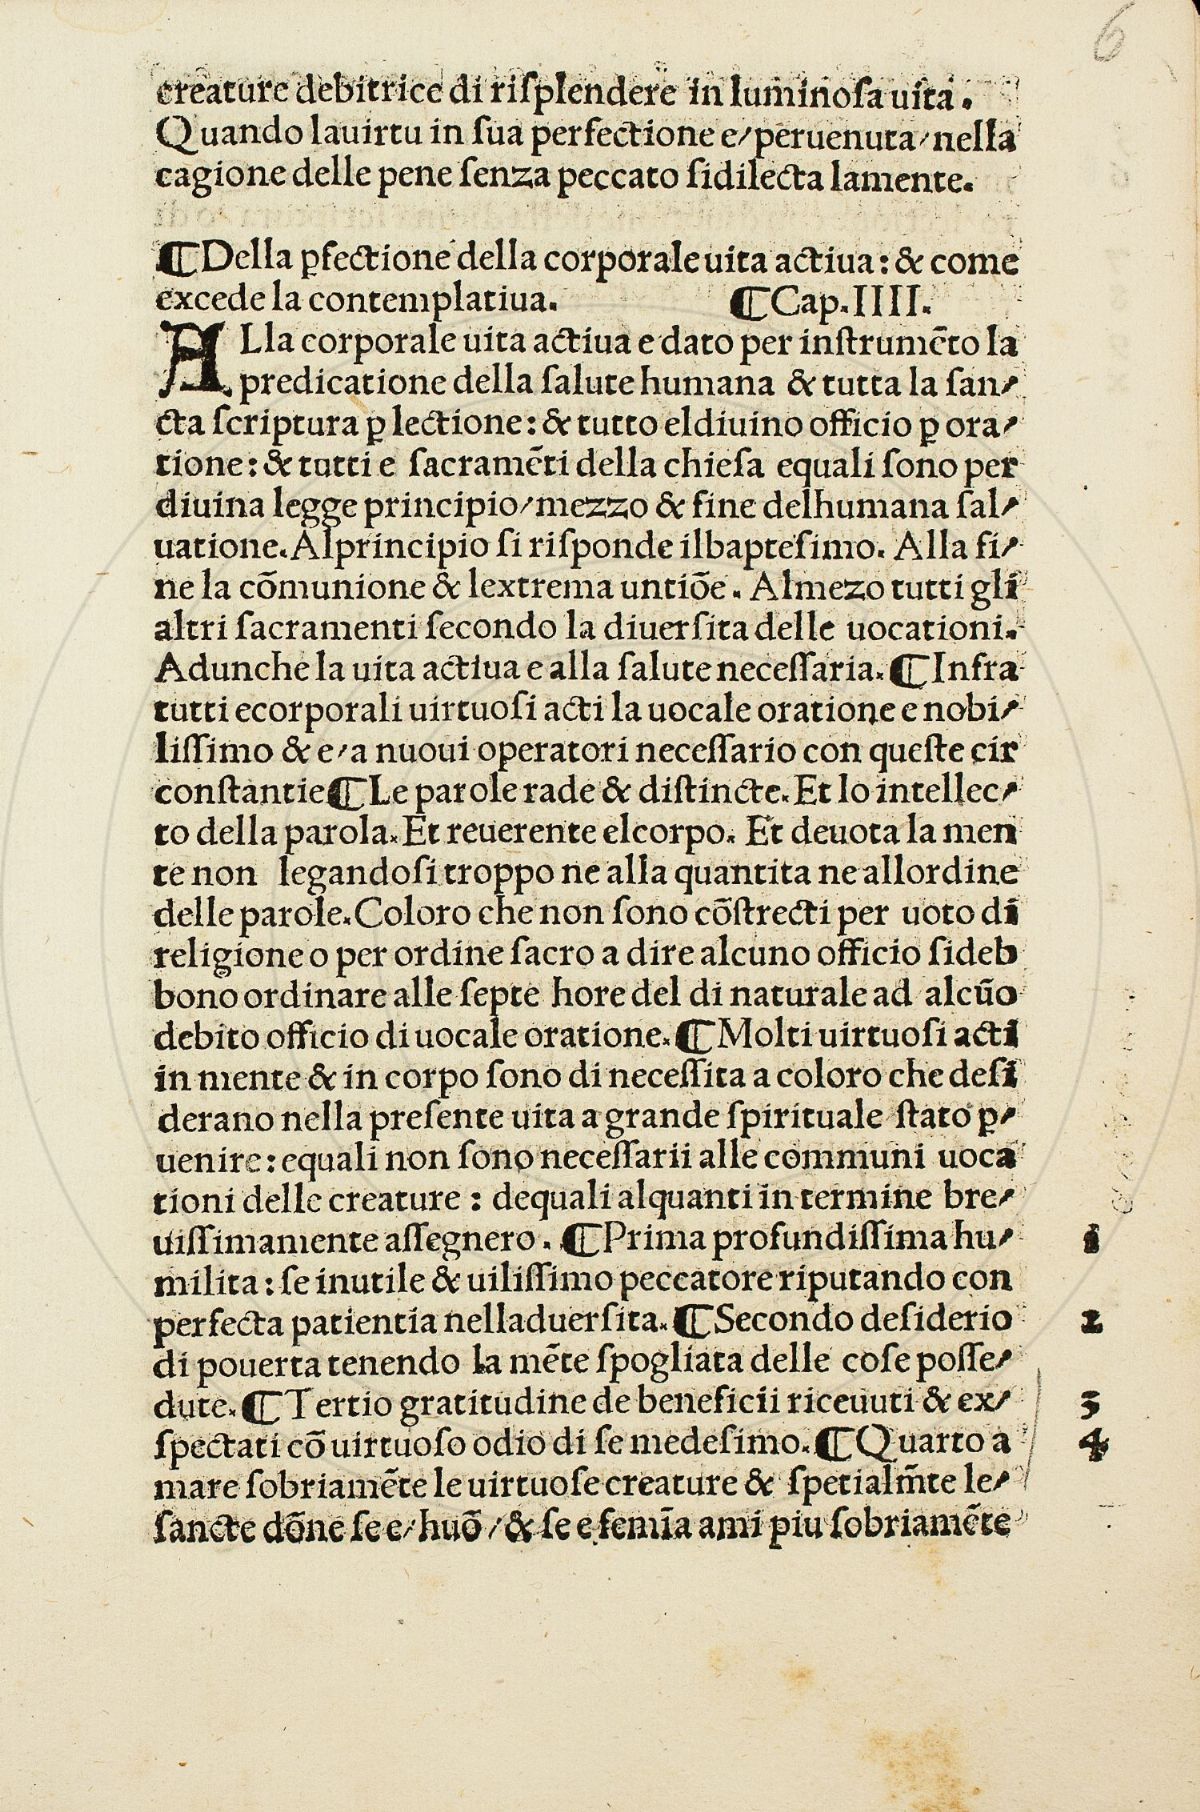 6
creature debitrice di riſplendere in luminoſa uita.
Quando lauirtu in ſua perfectione e/peruenuta/nella
cagione delle pene ſenza peccato ſidilecta lamente.
¶Della ꝑfectione della corporale uita actiua: & come
excede la contemplatiua. ¶Cap.IIII.
ALla corporale uita actiua e dato per inſtrumẽto la
predicatione della ſalute humana & tutta la ſan/
cta ſcriptura ꝑ lectione: & tutto eldiuino officio ꝑ ora/
tione: & tutti e ſacramẽti della chieſa equali ſono per
diuina legge principio/mezzo & fine delhumana ſal/
uatione.Alprincipio ſi riſponde ilbapteſimo. Alla fi/
ne la cõmunione & lextrema untiõe. Almezo tutti gli
altri ſacramenti ſecondo la diuerſita delle uocationi.
Adunche la uita actiua e alla ſalute neceſſaria.¶Infra
tutti ecorporali uirtuoſi acti la uocale oratione e nobi/
liſſimo & e/a nuoui operatori neceſſario con queſte cir
conſtantie¶Le parole rade & diſtincte.Et lo intellec/
to della parola.Et reuerente elcorpo. Et deuota la men
te non legandoſi troppo ne alla quantita ne allordine
delle parole.Coloro che non ſono cõſtrecti per uoto di
religione o per ordine ſacro a dire alcuno officio ſideb
bono ordinare alle ſepte hore del di naturale ad alcũo
debito officio di uocale oratione.¶Molti uirtuoſi acti
in mente & in corpo ſono di neceſſita a coloro che deſi
derano nella preſente uita a grande ſpirituale ſtato ꝑ/
uenire: equali non ſono neceſſarii alle communi uoca
tioni delle creature : dequali alquanti in termine bre/
uiſſimamente aſſegnero. ¶Prima profundiſſima hu/ 1
milita: ſe inutile & uiliſſimo peccatore riputando con
perfecta patientia nelladuerſita.¶Secondo deſiderio 2
di pouerta tenendo la mẽte ſpogliata delle coſe poſſe/
dute.¶Tertio gratitudine de beneficii riceuuti & ex/ 3
ſpectati cõ uirtuoſo odio di ſe medeſimo.¶Quarto a 4
mare ſobriamẽte le uirtuoſe creature & ſpetialm̃te le/
ſancte dõne ſe e/huõ/& ſe e femĩa ami piu ſobriamẽte